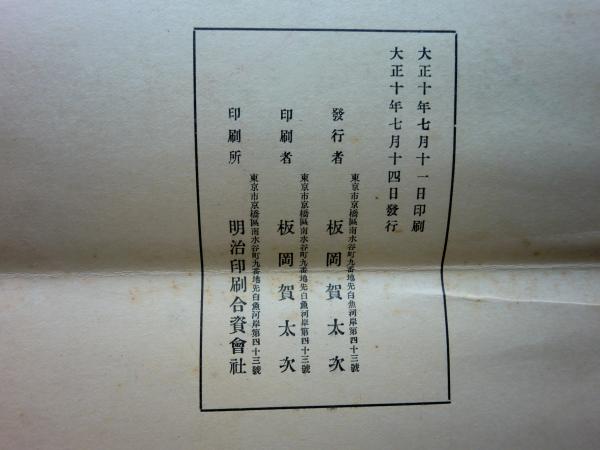 大正十年七月十一日印刷
大正十年七月十四日發行
東京市京橋區南水谷町九番地先白魚河岸第四十三號
發行者 板岡賀太次
東京市京橋區南水谷町九番地先白魚河岸第四十三號
印刷者 板岡賀太次
東京市京橋區南水谷町九番地先白魚河岸第四十三號
印刷所 明治印刷合資會社